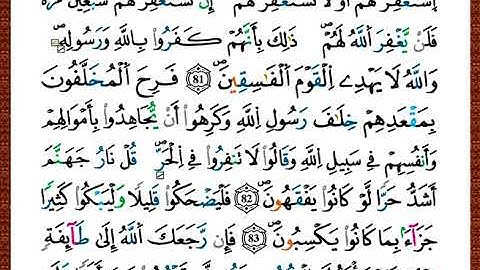 اِسْتَغْفِرْ لَهُمُۥٓ أَوْ لَا تَسْتَغْفِرْ لَهُمُۥٓ إِن تَسْتَغْفِرْ لَهُمْ سَبْعِينَ مَرَّةً
فَلَنْ يَّغْفِرَ اَللَّهُ لَهُمْ ذَٰلِكَ بِأَنَّهُمْ كَفَرُواْ بِاللَّهِ وَرَسُولِهِۦ
وَاللَّهُ لَا يَهْدِے اِلْقَوْمَ اَلْفَٰسِقِينَ 81 فَرِحَ اَلْمُخَلَّفُونَ
بِمَقْعَدِهِمْ خِلَٰفَ رَسُولِ اِللَّهِ وَكَرِهُوٓاْ أَنْ يُّجَٰهِدُواْ بِأَمْوَٰلِهِمْ
وَأَنفُسِهِمْ فِے سَبِيلِ اِللَّهِ وَقَالُواْ لَا تَنفِرُواْ فِے اِلْحَرِّ قُلْ نَارُ جَهَنَّمَ
أَشَدُّ حَرّاً لَّوْ كَانُواْ يَفْقَهُونَ 82 فَلْيَضْحَكُواْ قَلِيلاً وَلْيَبْكُواْ كَثِيراً
جَزَآءَۢ بِمَا كَانُواْ يَكْسِبُونَ 83 فَإِن رَّجَعَكَ اَللَّهُ إِلَىٰ طَآئِفَةٍ